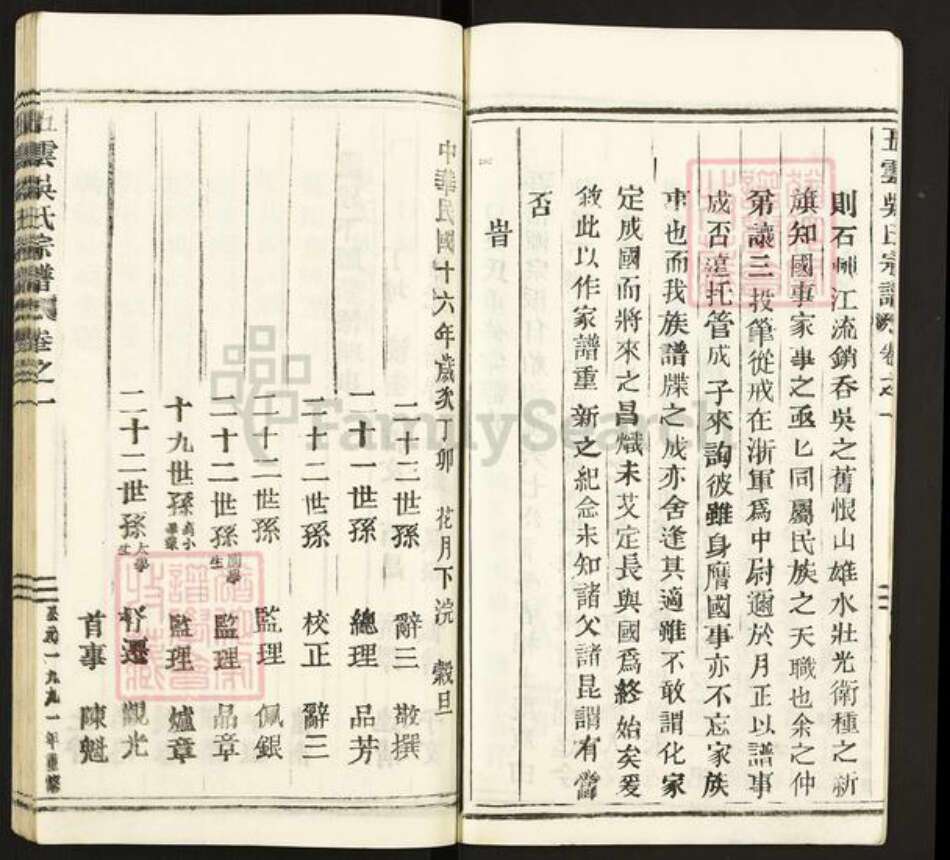 五雲吳氏宗譜 卷之一
則石𠦑江流銷吞吳之舊恨山雄水壯光衛種之新
旗知國事家事之亟匕同屬民族之天職也余之仲
第讓三投筆從戎在浙軍爲中尉邇於月正以譜事
成否遠托管成子來詢彼雖身膺國事亦不忘家族
事也而我族譜牒之成亦舍逢其適雖不敢謂化家
定成國而將來之昌熾未艾定長與國爲終始矣爰
敘此以作家譜重新之紀念未知諸父諸昆謂有當
否
旹
中華民國十六年歲次丁卯花月下浣 穀旦
二十三世孫 辭三 敬撰
二十一世孫 總理 品芳
二十二世孫 校正 辭三
二十二世孫 監理 佩銀
二十二世孫 監理 品章
十九世孫 高小畢業 監理 爐章
二十二世孫 大學生 觀光
首事 陳魁
五雲吳氏宗譜 卷之一
公元一九九一年重修
FamilySearch